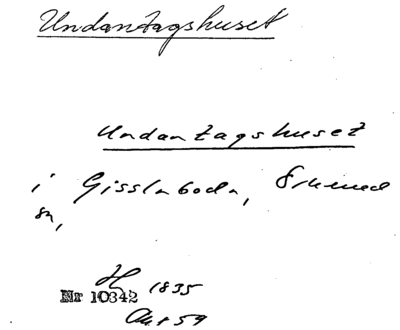 Undantagshuset
Undantagshuset
i Gisslaboda,
sn,
H 1835
Nr 10342
Akt 59